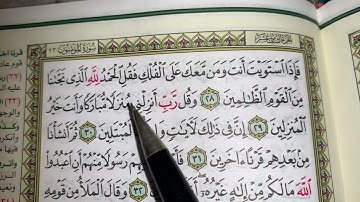 سورة المؤمنون
فَإِذَا ٱسْتَوَيْتَ أَنتَ وَمَن مَّعَكَ عَلَى ٱلْفُلْكِ فَقُلِ ٱلْحَمْدُ لِلَّهِ ٱلَّذِى نَجَّىٰنَا
مِنَ ٱلْقَوْمِ ٱلظَّٰلِمِينَ ٢٨ وَقُل رَّبِّ أَنزِلْنِى مُنزَلًا مُّبَارَكًا وَأَنتَ خَيْرُ
ٱلْمُنزِلِينَ ٢٩ إِنَّ فِى ذَٰلِكَ لَءَايَٰتٍ وَإِن كُنَّا لَمُبْتَلِينَ ٣٠ ثُمَّ أَنشَأْنَا
مِنۢ بَعْدِهِمْ قَرْنًا ءَاخَرِينَ ٣١ رَسُولًا مِّنْهُمْ أَنِ ٱعْبُدُوا۟
ٱللَّهَ مَا لَكُم مِّنْ إِلَٰهٍ غَيْرُهُۥٓ ٣٢ وَقَالَ ٱلْمَلَأُ مِن قَوْمِهِ